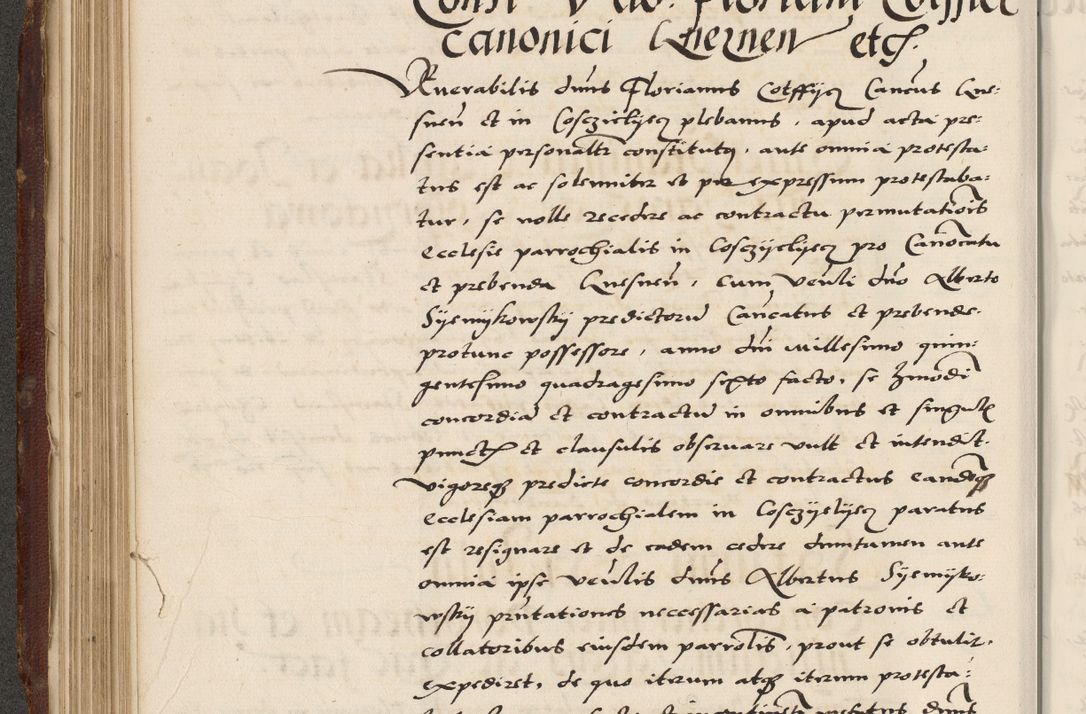 canonici Gneznen etc.
Venerabilis dnus Florianus Cotffycz Cancus Gne-
snen et in Cosczielyecz plebanus, apud acta pre-
sentia personaltr constitutus, ante omnia protesta-
tus est ac solenniter et per expressum protestaba-
tur, se nolle recedere ac contractu permutationis
Ecclesie parrochialis in Cosczyelyecz pro Canonicatu
et prebenda Gnesnen, cum venli dno Alberto
Syemykowsky predictorum Cancatus et prebende
protunc possessore, anno dni millesimo quin-
gentesimo quadragesimo sexto facto, se hmodi
concordia et contractu in omnibus et singulis
punctis et clausulis observare vult et intendit.
vigoreque predicte concordie et contractus eandemque
Ecclesiam parrochialem in Cosczyelyecz paratus
est resignare et de eadem cedere dumtamen ante
omnia ipse venlis dnus Albertus Syemyko-
wsky pntationes necessarias a patronis et
collatoribus eiusdem parrolis, prout se obtulit,
expediret, de quo iterum atque iterum protesta-